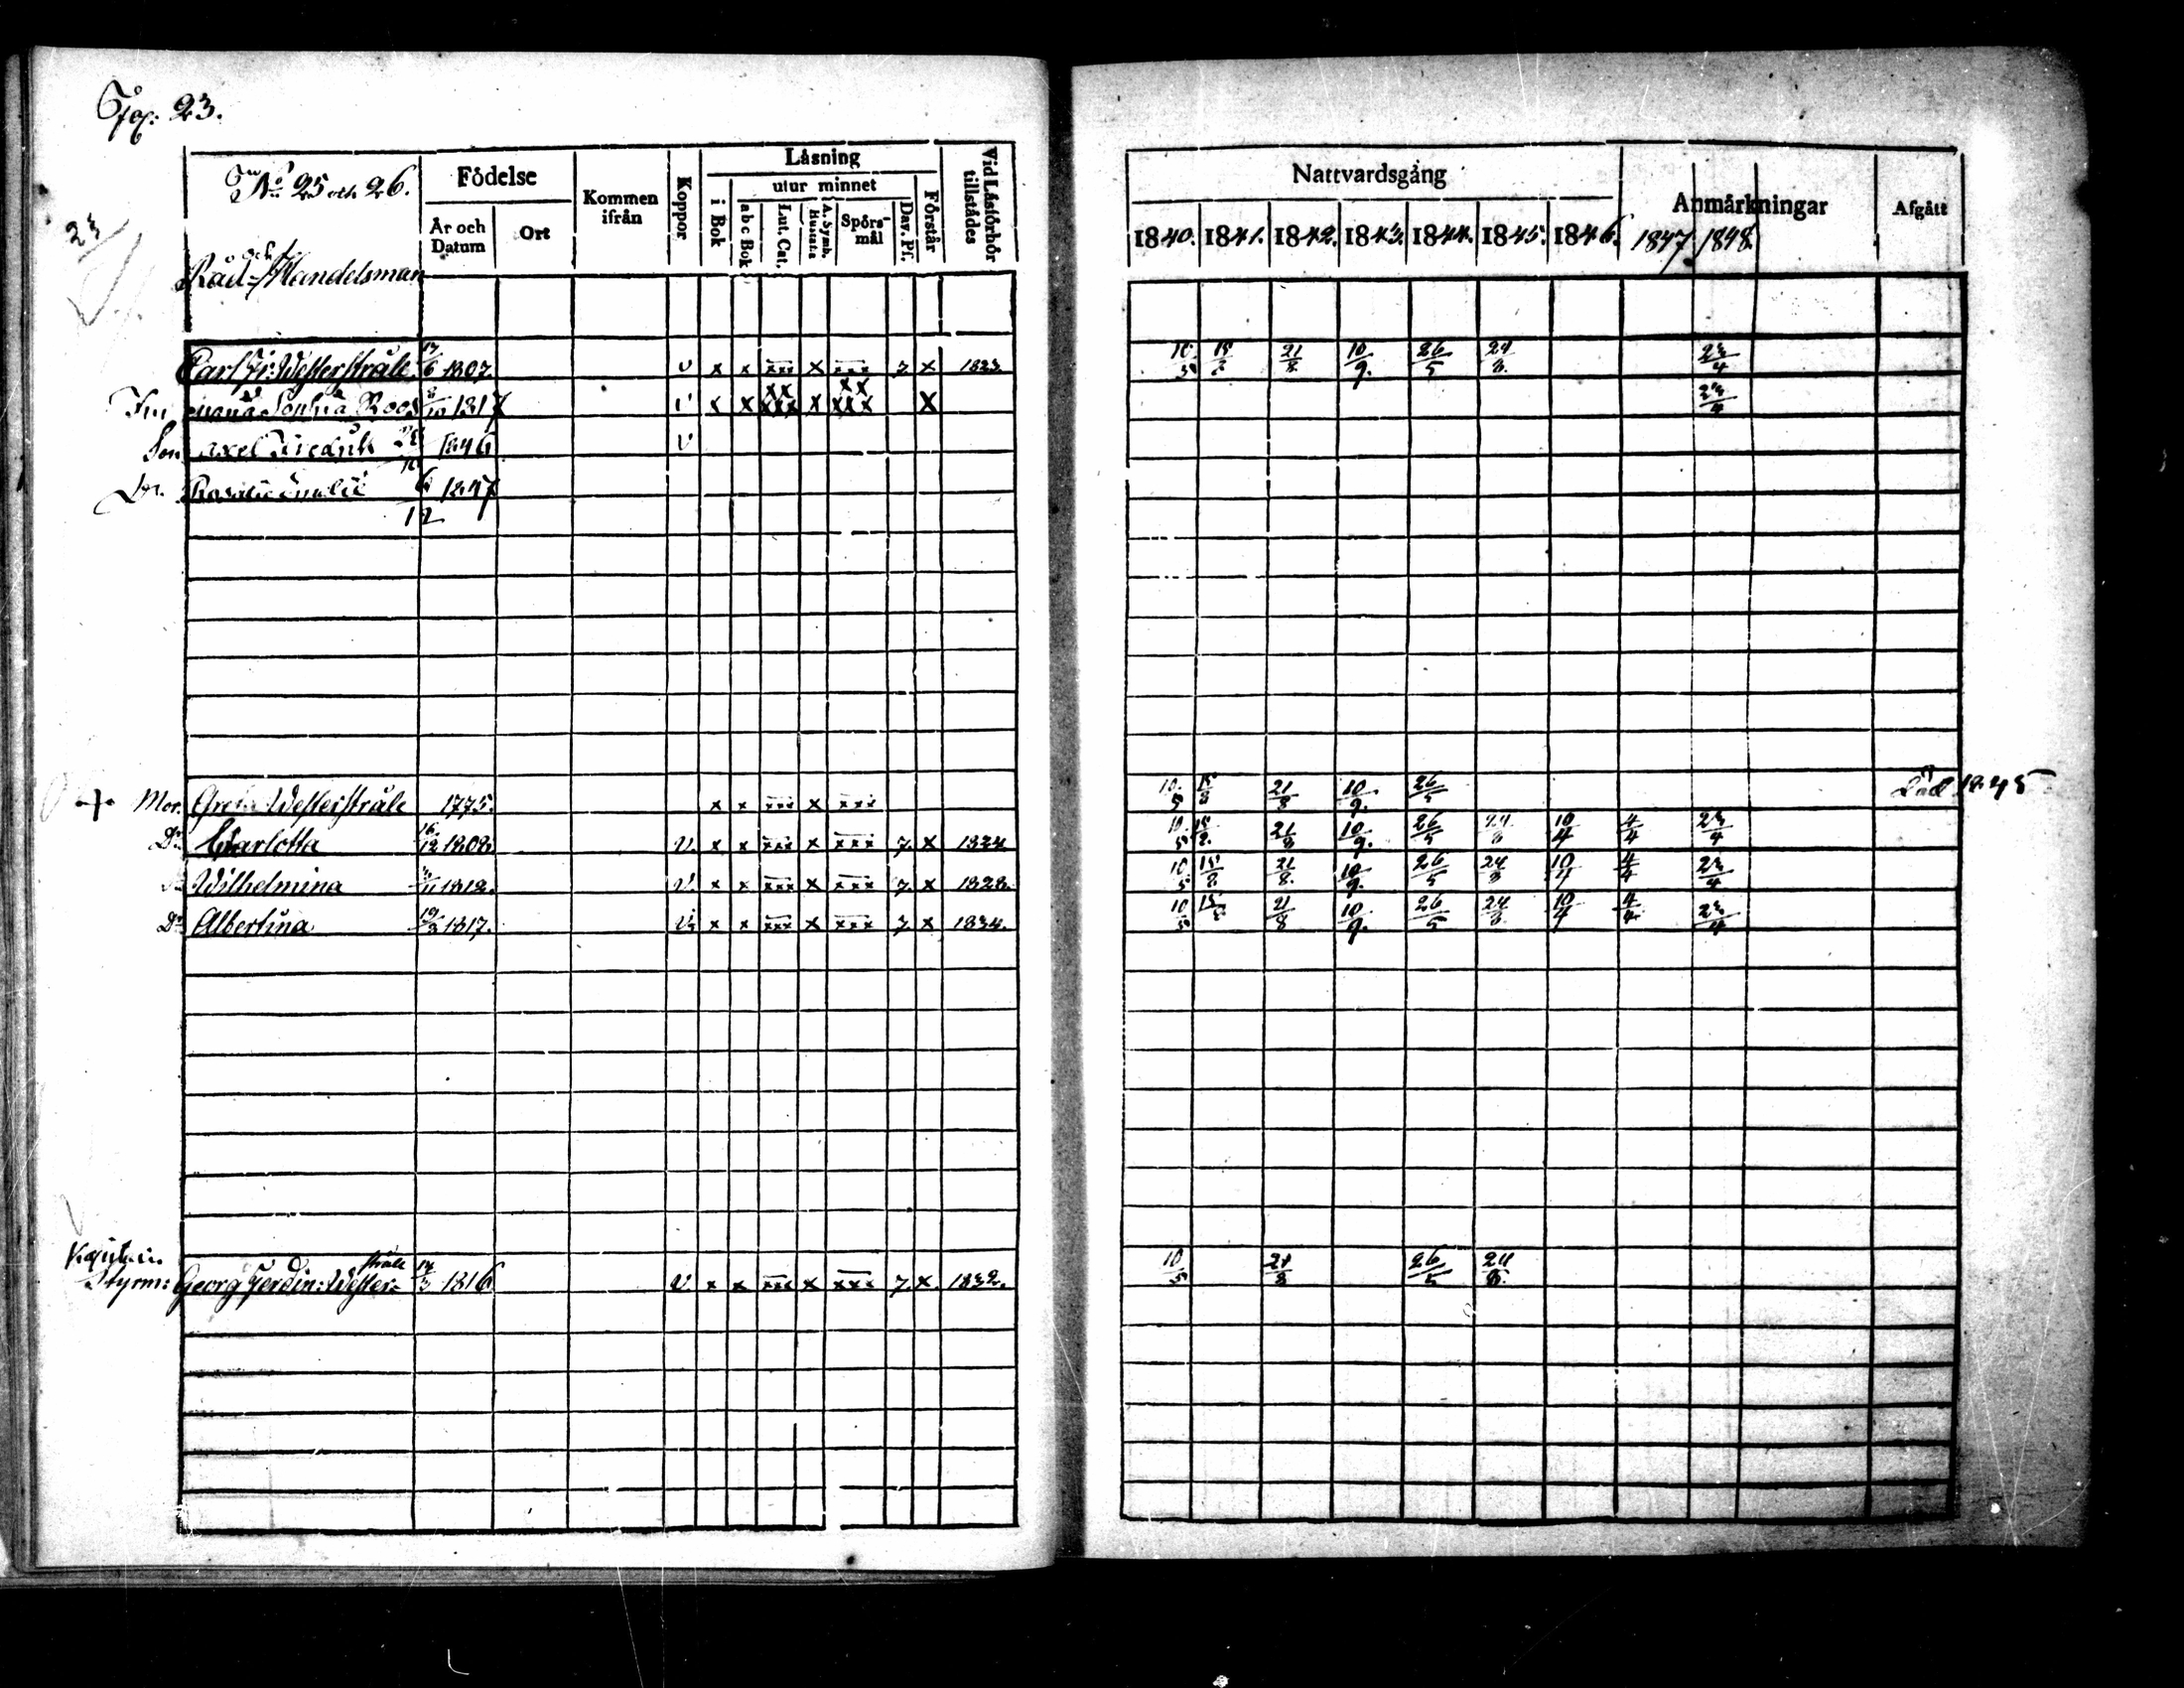 23.
No 25 och 26.
Födelse
Kommen ifrån
Koppor
Läsning
utur minnet
i Bok
a b c Bok
Lut. Cat.
A. Symb. Hustafl.
Spörsmål
Dav. Ps.
Förstår
Vid Läsförhör tillstådes
År och Datum
Ort
Nattvardsgång
Anmärkningar
Afgått
1840. 1841. 1842. 1843. 1844. 1845. 1846. 1847. 1848.
23
Råd och Handelsman
Carl Fr: Westerstråle 17/6 1807 v x x xxx x xxx 7 x 1823 10/5 15/8 21/8 10/9. 26/5 24/8 23/4
Sophia Roos 1817 v x x xxx x xxx x 23/4
Son Axel Fredrik 1846 v
Dr. Emelie 6/12 1847
+ Mor. Westerstråle 1775. x x xxx x xxx 10/5 15/8 21/8 10/9. 26/5 död 1845
Dr Charlotta 16/12 1808. v. x x xxx x xxx 7. x 1824 10/5 15/8. 21/8 10/9. 26/5 24/8 10/4 4/4 23/4
Wilhelmina 1812. v. x x xxx x xxx 7. x 1828. 10/5 15/8 21/8. 10/9. 26/5 24/8 10/4 4/4 23/4
Dr Albertina 19/2 1817. v. x x xxx x xxx 7. x 1834. 10/5 15/8 21/8 10/9. 26/5 24/8 10/4 4/4 23/4
Kapitain
Styrm: Georg Ferdin: Westerstråle 1816 v. x x xxx x xxx 7. x. 1832. 10/5 21/8 26/5 24/8.